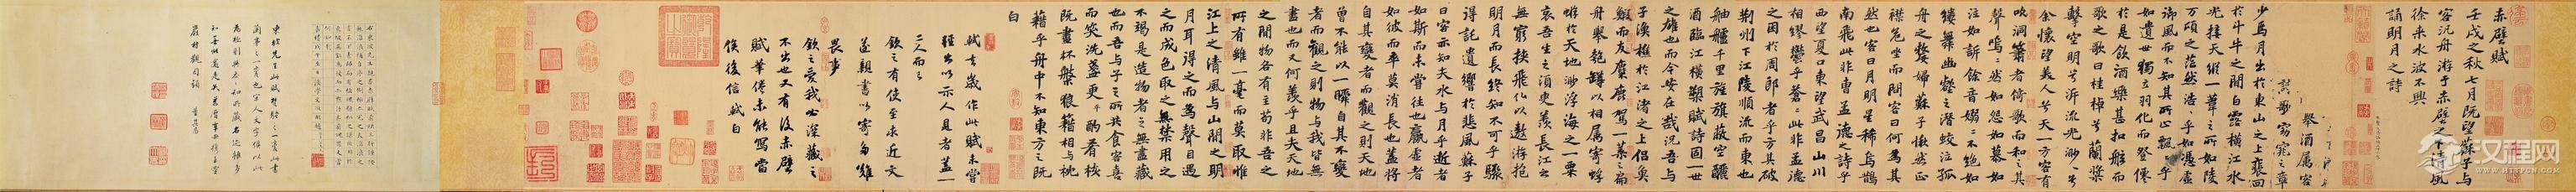 赤壁賦
壬戌之秋七月既望蘇子與
客汎舟游于赤壁之下清風
徐來水波不興
舉酒屬客
誦明月之詩
歌窈窕之章
少焉月出於東山之上裵回
於斗牛之間白露橫江水
光接天縱一葦之所如陵
萬頃之茫然浩浩乎如馮虛
御風而不知其所止飄飄乎
如遺世獨立羽化而登僊
於是飲酒樂甚扣舷而
歌之歌曰桂棹兮蘭槳
擊空明兮泝流光渺渺兮
余懷望美人兮天一方客有
吹洞簫者倚歌而和之其
聲嗚嗚然如怨如慕如
泣如訴餘音嫋嫋不絕如
縷舞幽壑之潛蛟泣孤
舟之嫠婦蘇子愀然正
襟危坐而問客曰何為其
然也客曰月明星稀烏鵲
南飛此非曹孟德之詩乎
西望夏口東望武昌山川
相繆鬱乎蒼蒼此非孟德
之困於周郎者乎方其破
荊州下江陵順流而東也
舳艫千里旌旗蔽空釃
酒臨江橫槊賦詩固一世
之雄也而今安在哉況吾與
子漁樵於江渚之上侶魚
鰕而友麋鹿駕一葉之扁
舟舉匏樽以相屬寄蜉
蝣於天地渺浮海之一粟
哀吾生之須臾羨長江之
無窮挾飛仙以遨游抱
明月而長終知不可乎驟
得託遺響於悲風蘇子
曰客亦知夫水與月乎逝者
如斯而未嘗往也贏虛者
如彼而卒莫消長也蓋將
自其變者而觀之則天地
曾不能以一瞬自其不變
者而觀之則物與我皆無
盡也而又何羨乎且夫天地
之間物各有主苟非吾之
所有雖一毫而莫取惟
江上之清風與山間之明
月耳得之而為聲目遇
之而成色取之無禁用之
不竭是造物者之無盡藏
也而吾與子之所共食客喜
而笑洗盞更酌肴核
既盡杯盤狼籍相與枕
藉乎舟中不知東方之既
白
軾去歲作此賦未嘗
輕出以示人見者蓋一
二人而已
欽之有使至求近文
遂親書以寄多難
畏事
欽之愛我必深藏之
不出也又有後赤壁
賦筆倦未能寫當
俟後信軾白
汉程网